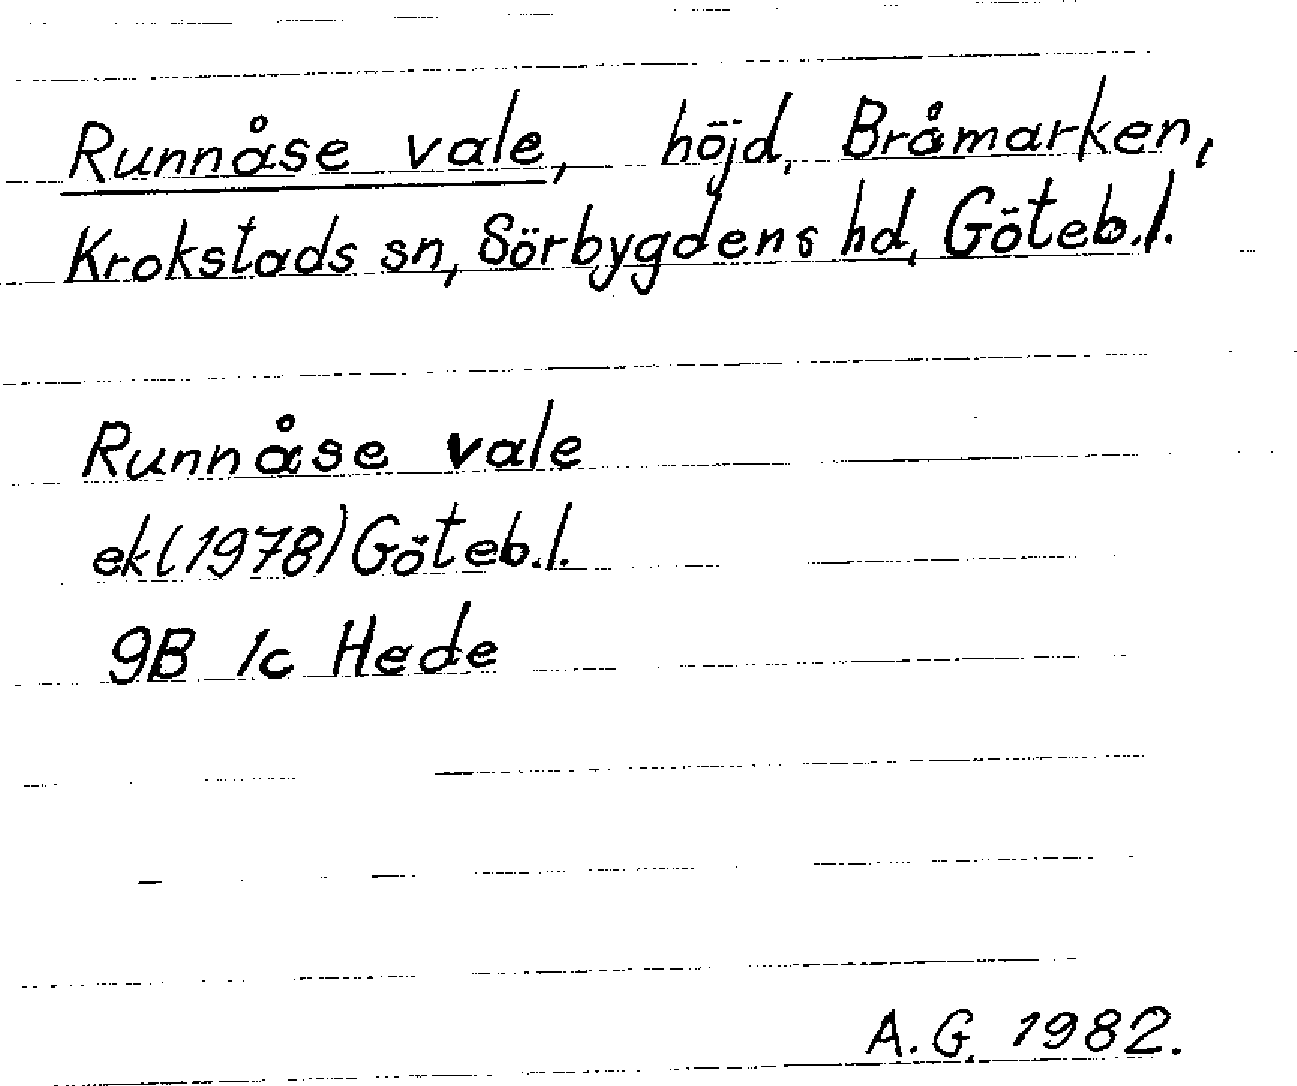 Runnåse vale, höjd, Bråmarken,
Krokstads sn, Sörbygdens hd, Göteb.l.
Runnåse vale
ekl(1978) Göteb.l.
9B 1c Hede
A.G. 1982.